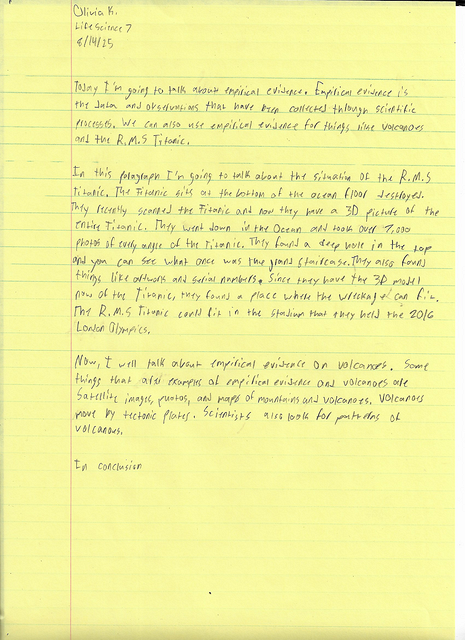 Olivia K.
Life Science 7
8/14/25
Today I'm going to talk about empirical evidence. Empirical evidence is
the data and observations that have been collected through scientific
processes. We can also use empirical evidence for things like volcanoes
and the R.M.S Titanic.
In this paragraph I'm going to talk about the situation of the R.M.S
Titanic. The Titanic sits at the bottom of the ocean floor destroyed.
They recently scanned the Titanic and now they have a 3D picture of the
entire Titanic. They went down in the Ocean and took over 7,000
photos of every angle of the Titanic. They found a deep hole in the
and you can see what once was the grand staircase. They also found
things like artwork and serial numbers. Since they have the 3D model
now of the Titanic, they found a place where the wreckage can fit.
The R.M.S Titanic could fit in the stadium that they held the 2016
London Olympics.
Now, I will talk about empirical evidence on volcanoes. Some
things that are examples of empirical evidence and volcanoes are
Satellite images, photos, and maps of mountains and volcanoes. Volcanoes
move by tectonic plates. Scientists also look for patterns of
volcanoes.
In conclusion